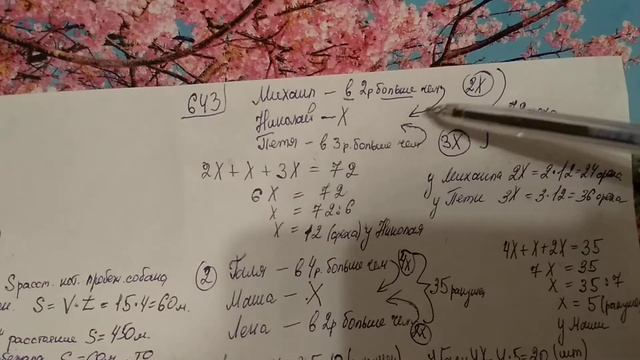 643
Михаил – в 2р больше чем 2X
Николай – X
Петя – в 3р. больше чем 3X
2X + X + 3X = 72
6X = 72
X = 72:6
X = 12 (ореха) у Николая
у Михаила 2X = 2·12 = 24 ореха
у Пети 3X = 3·12 = 36 орехов
2
Галя – в 4р. больше чем 4X
Маша – X
Лена – в 2р больше чем 2X
35 ракушек
4X + X + 2X = 35
7X = 35
X = 35:7
X = 5
у Маши
S расст. кот. пробеж. собака
S = V·t = 15·4 = 60м.
расстояние S = 450м.